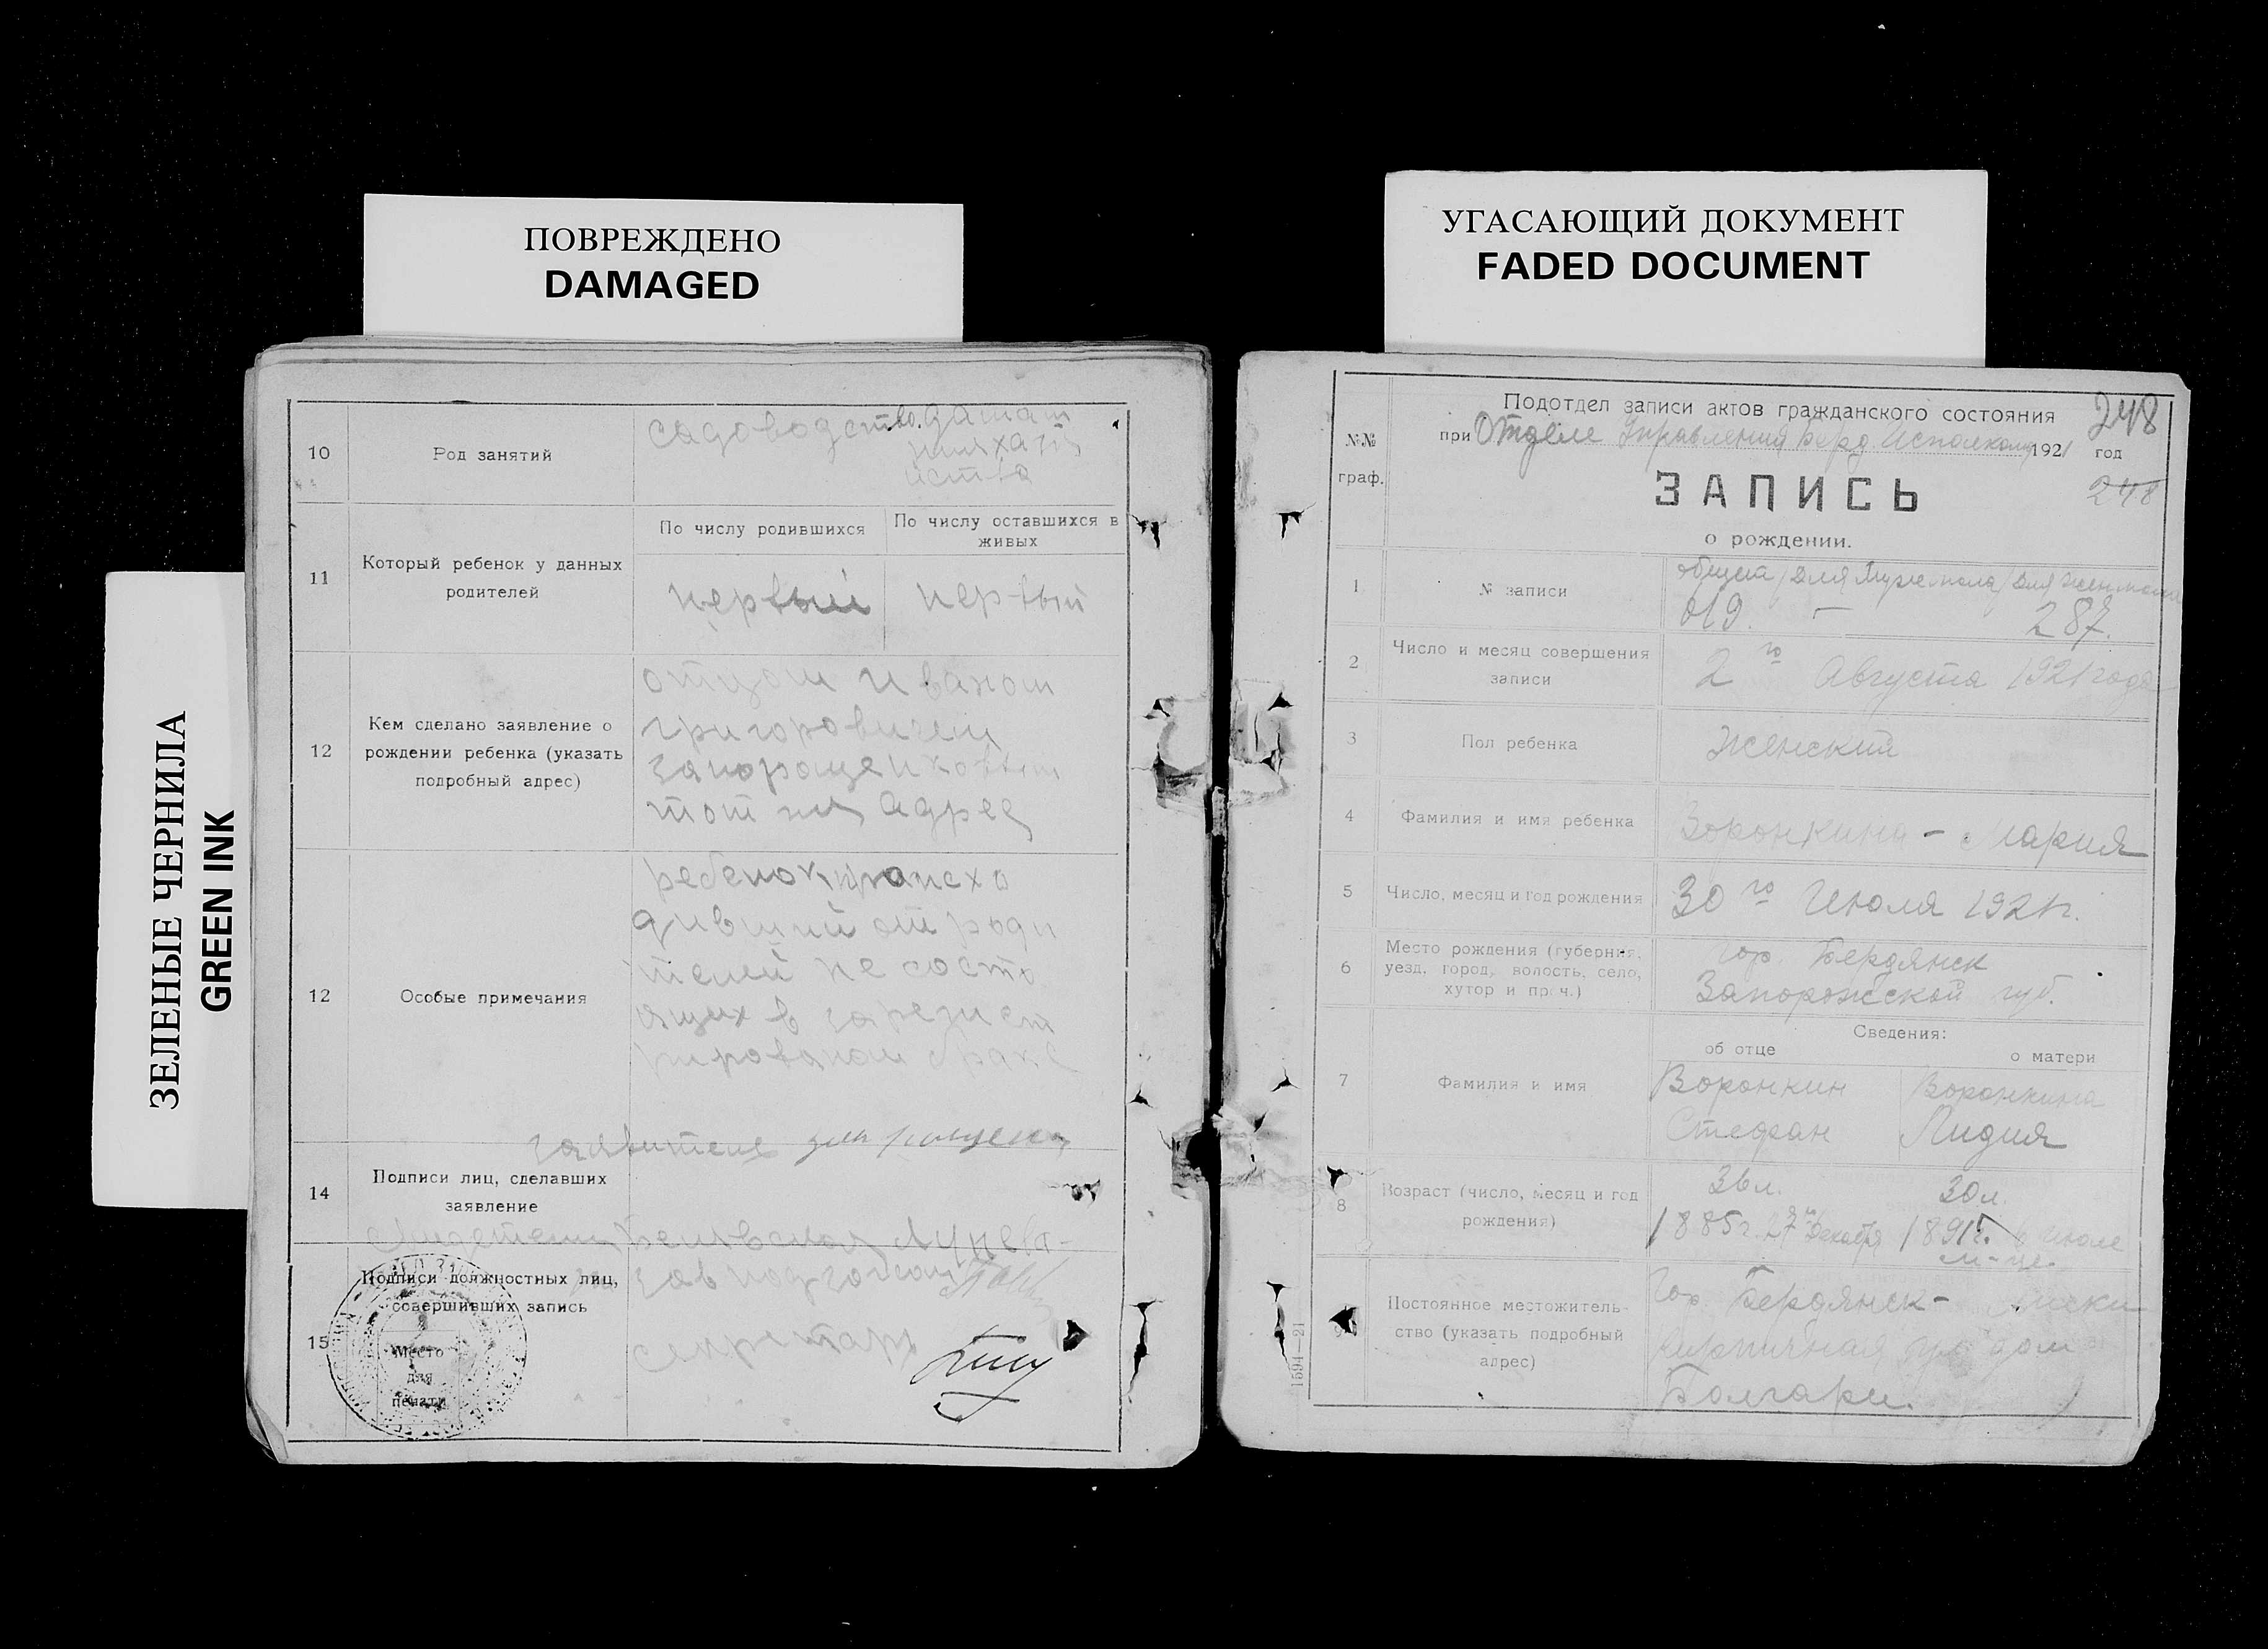 ПОВРЕЖДЕНО
DAMAGED
УГАСАЮЩИЙ ДОКУМЕНТ
FADED DOCUMENT
ЗЕЛЕНЫЕ ЧЕРНИЛА
GREEN INK
10
Род занятий
садоводство.
11
Который ребенок у данных
родителей
По числу родившихся
По числу оставшихся в
живых
первый
первый
12
Кем сделано заявление о
рождении ребенка (указать
подробный адрес)
отцом Иваном
Григоровичем
тот же адрес
12
Особые примечания
ребенок происхо
дивший от роди
телей не состо
ящих в зарегист
рированом браке
14
Подписи лиц, сделавших
заявление
15
Подписи должностных лиц,
совершивших запись
Место
для
печати
секретарь
№№
граф.
Подотдел записи актов гражданского состояния
при Отделе Управления Берд. Исполкома 1921 год
248
248
ЗАПИСЬ
о рождении.
1
№ записи
общий / для муж. пола / для жен. пола
619. — 287.
2
Число и месяц совершения
записи
2го Августа 1921 года
3
Пол ребенка
Женский
4
Фамилия и имя ребенка
Воронкина - Мария
5
Число, месяц и год рождения
30го Июля 1921 г.
6
Место рождения (губерния,
уезд, город, волость, село,
хутор и проч.)
Гор. Бердянск
Запорожской губ.
Сведения:
об отце
о матери
7
Фамилия и имя
Воронкин
Стефан
Воронкина
Лидия
8
Возраст (число, месяц и год
рождения)
36 л.
1885 г. Декабря
30 л.
1891 г. Июле
м-це.
Постоянное местожитель-
ство (указать подробный
адрес)
Гор. Бердянск - Лиски
Кирпичная дом
Болгари.
1594—21